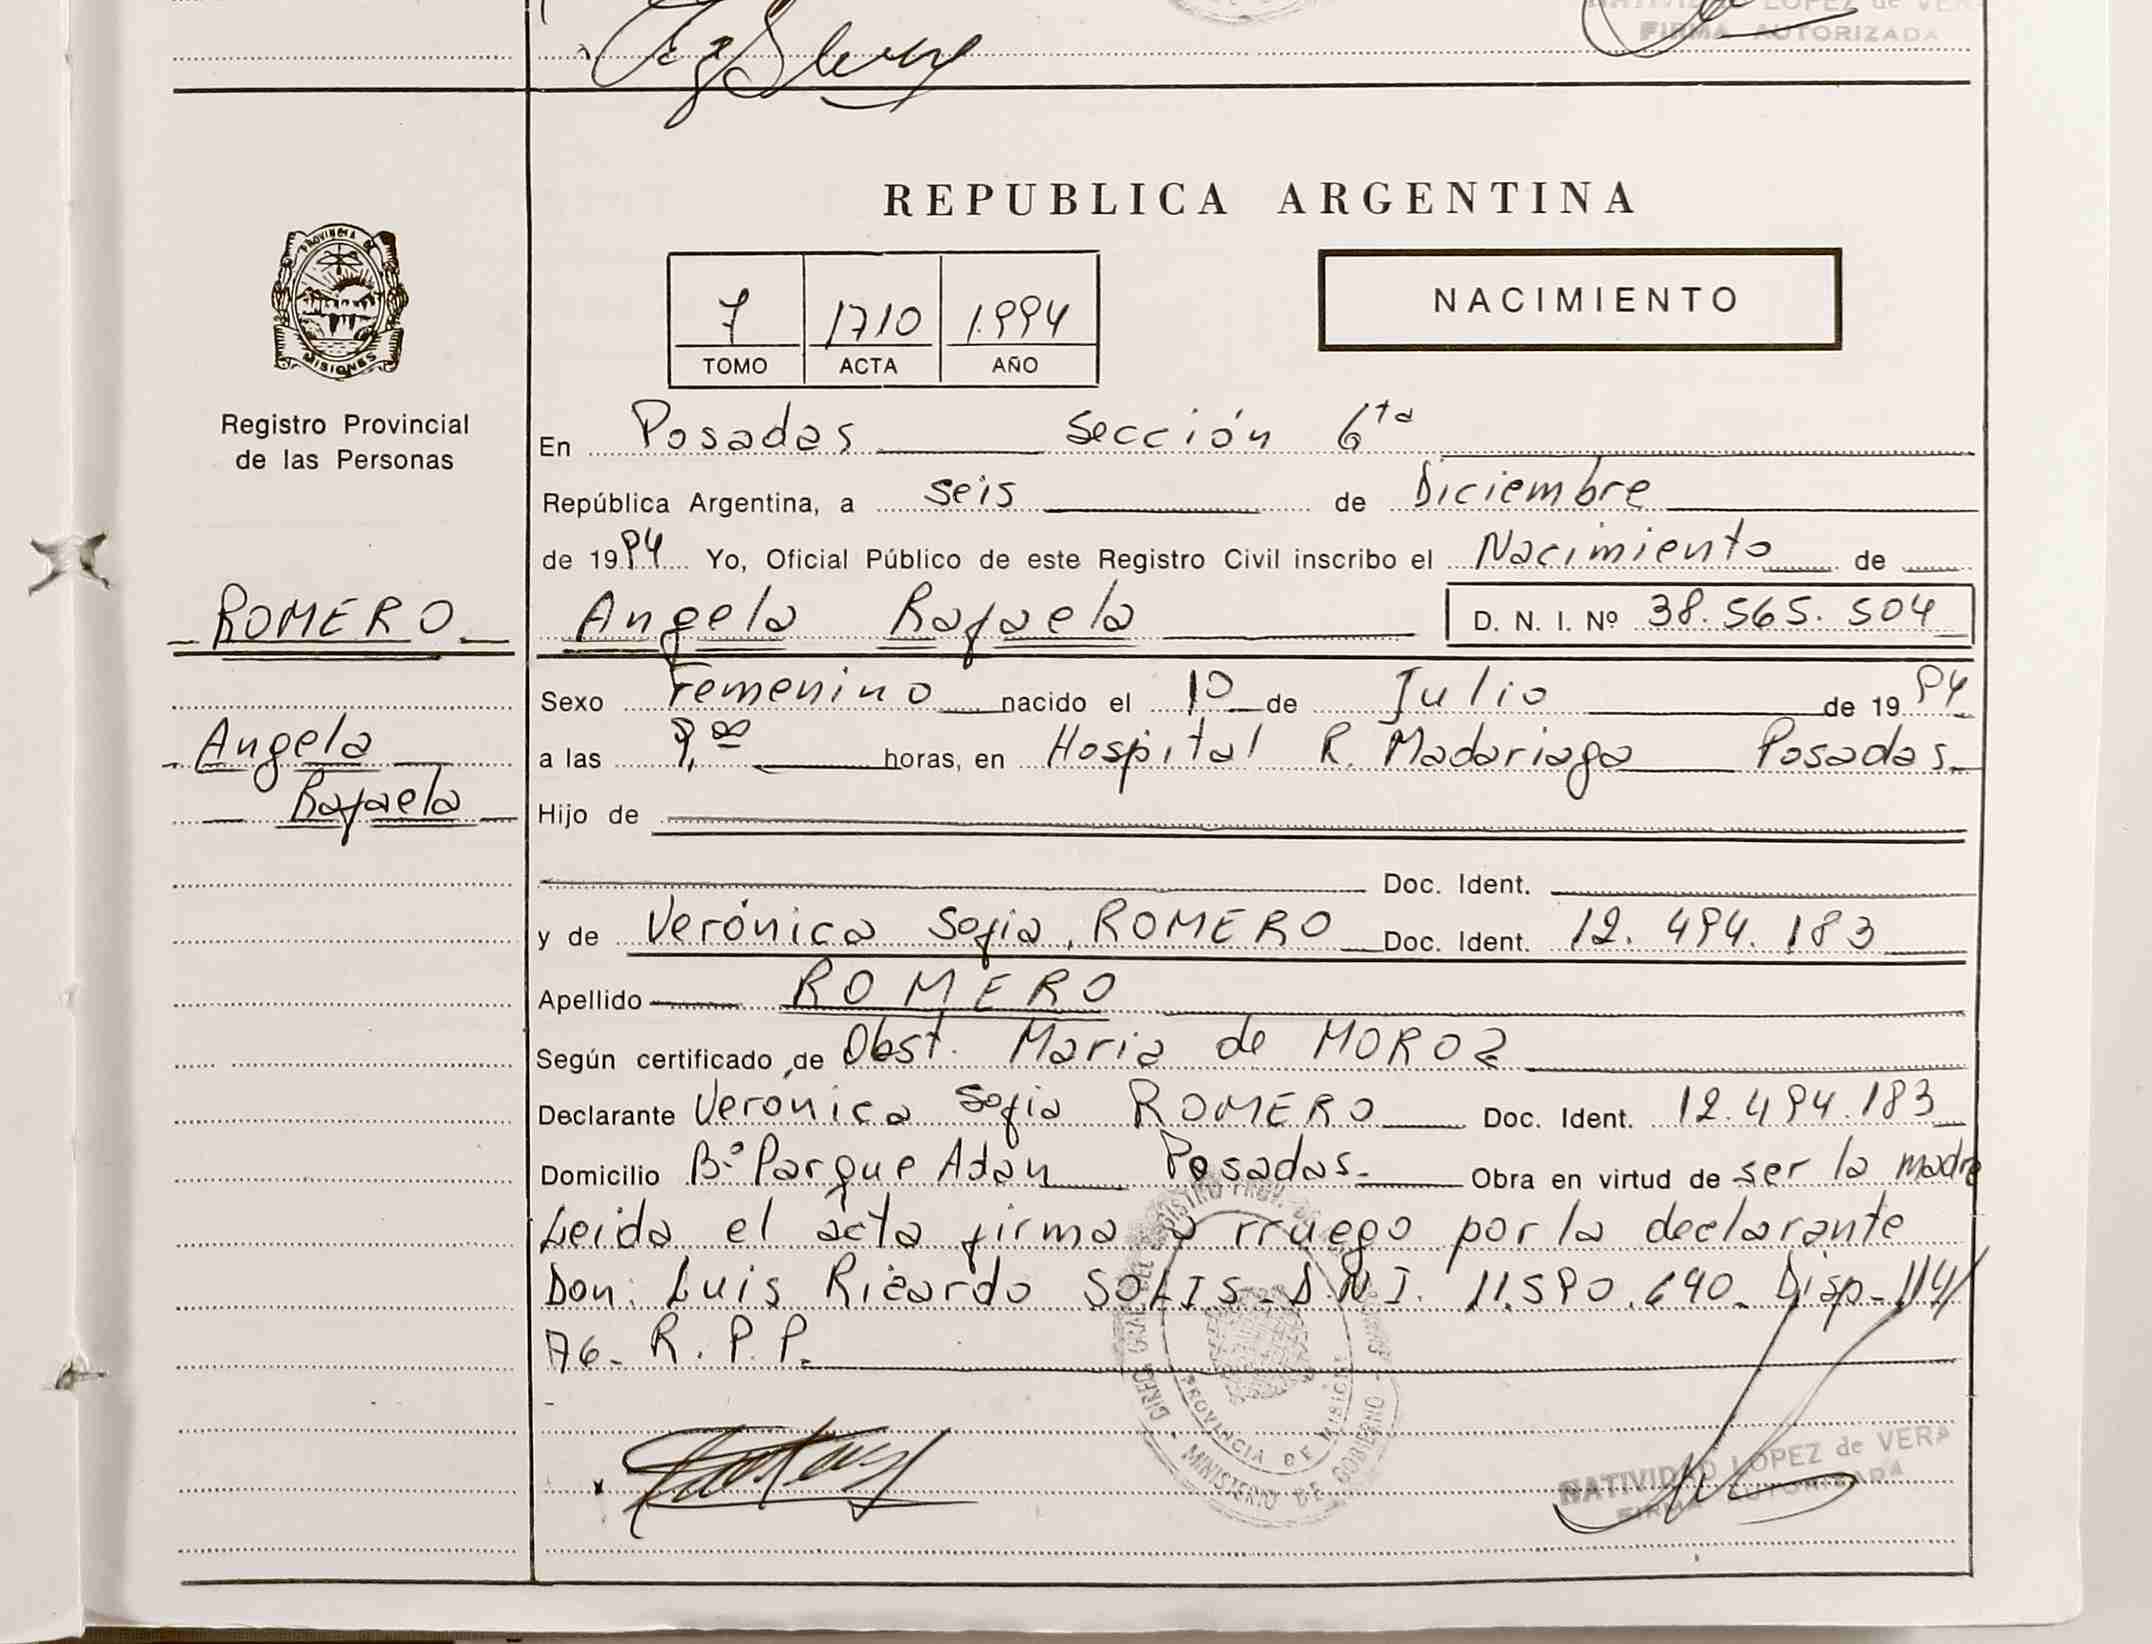 NATIVIDAD LOPEZ de VERA
FIRMA AUTORIZADA
REPUBLICA ARGENTINA
PROVINCIA DE
MISIONES
Registro Provincial
de las Personas
7 1710 1.994
TOMO ACTA AÑO
NACIMIENTO
En Posadas Sección 6ta
República Argentina, a seis de Diciembre
de 1994 Yo, Oficial Público de este Registro Civil inscribo el Nacimiento de
ROMERO
Angela Rafaela D. N. I. Nº 38.565.504
Sexo Femenino nacido el 10 de Julio de 1994
Angela
Rafaela
a las 9,00 horas, en Hospital R. Madariaga Posadas
Hijo de
Doc. Ident.
y de Verónica Sofia, ROMERO Doc. Ident. 12.494.183
Apellido ROMERO
Según certificado de Obst. Maria de MOROZ
Declarante Veronica Sofia ROMERO Doc. Ident. 12.494.183
Domicilio Bº Parque Adan Posadas. Obra en virtud de ser la madre
Leida el acta firma a rruego por la declarante
Don: Luis Ricardo SOLIS D.N.I. 11.590.690 Disp- 114/
76- R.P.P.
PROVINCIA DE MISIONES
MINISTERIO DE GOBIERNO
NATIVIDAD LOPEZ de VERA
FIRMA AUTORIZADA